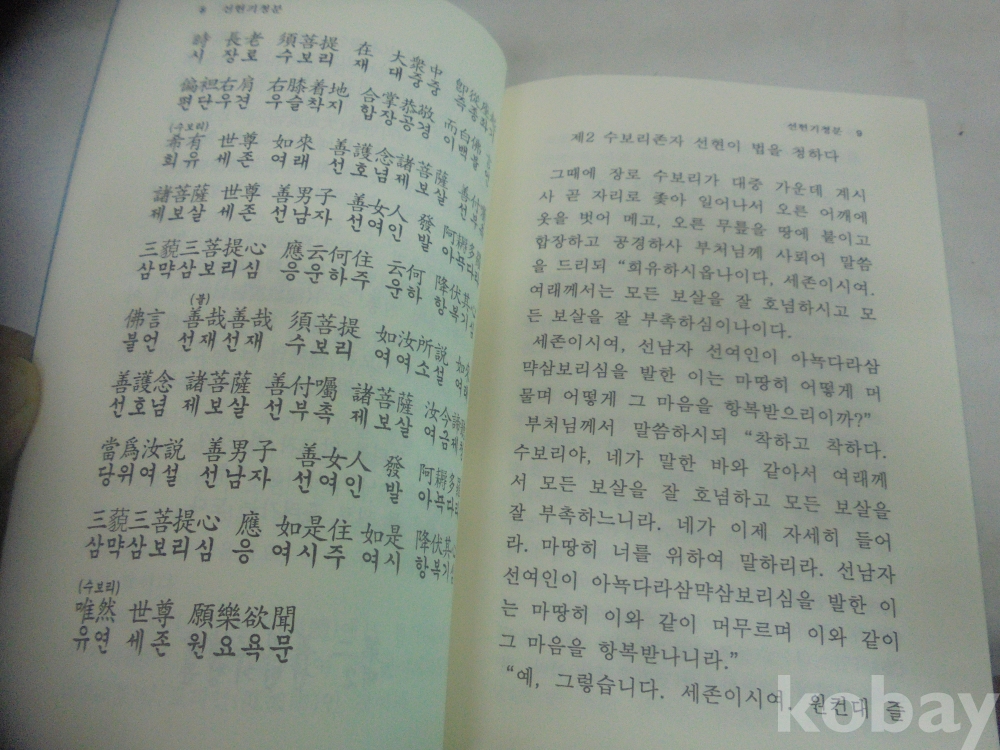 8 선현기청분
時 長老 須菩提 在 大衆中
시 장로 수보리 재 대중중
偏袒右肩 右膝着地 合掌恭敬 而白佛
편단우견 우슬착지 합장공경 이백불
(수보리)
希有 世尊 如來 善護念諸菩薩 善付
희유 세존 여래 선호념제보살 선부
諸菩薩 世尊 善男子 善女人 發 阿耨多
제보살 세존 선남자 선여인 발 아뇩다
三藐三菩提心 應云何住 云何 降伏其心
삼먁삼보리심 응운하주 운하 항복기심
(불)
佛言 善哉善哉 須菩提 如汝所說 如
불언 선재선재 수보리 여여소설 여
善護念 諸菩薩 善付囑 諸菩薩 汝今諦
선호념 제보살 선부촉 제보살 여금제
當爲汝說 善男子 善女人 發 阿耨多
당위여설 선남자 선여인 발 아뇩다
三藐三菩提心 應 如是住 如是 降伏其心
삼먁삼보리심 응 여시주 여시 항복기심
(수보리)
唯然 世尊 願樂欲聞
유연 세존 원요욕문
선현기청분 9
제2 수보리존자 선현이 법을 청하다
그때에 장로 수보리가 대중 가운데 계시
사 곧 자리로 좇아 일어나서 오른 어깨에
옷을 벗어 메고, 오른 무릎을 땅에 붙이고
합장하고 공경하사 부처님께 사뢰어 말씀
을 드리되 “희유하시옵나이다, 세존이시여.
여래께서는 모든 보살을 잘 호념하시고 모
든 보살을 잘 부촉하심이나이다.
세존이시여, 선남자 선여인이 아뇩다라삼
먁삼보리심을 발한 이는 마땅히 어떻게 머
물며 어떻게 그 마음을 항복받으리이까?”
부처님께서 말씀하시되 “착하고 착하다.
수보리야, 네가 말한 바와 같아서 여래께
서 모든 보살을 잘 호념하고 모든 보살을
잘 부촉하느니라. 네가 이제 자세히 들어
라. 마땅히 너를 위하여 말하리라. 선남자
선여인이 아뇩다라삼먁삼보리심을 발한 이
는 마땅히 이와 같이 머무르며 이와 같이
그 마음을 항복받나니라.”
“예, 그렇습니다. 세존이시여, 원컨대 즐
kobay